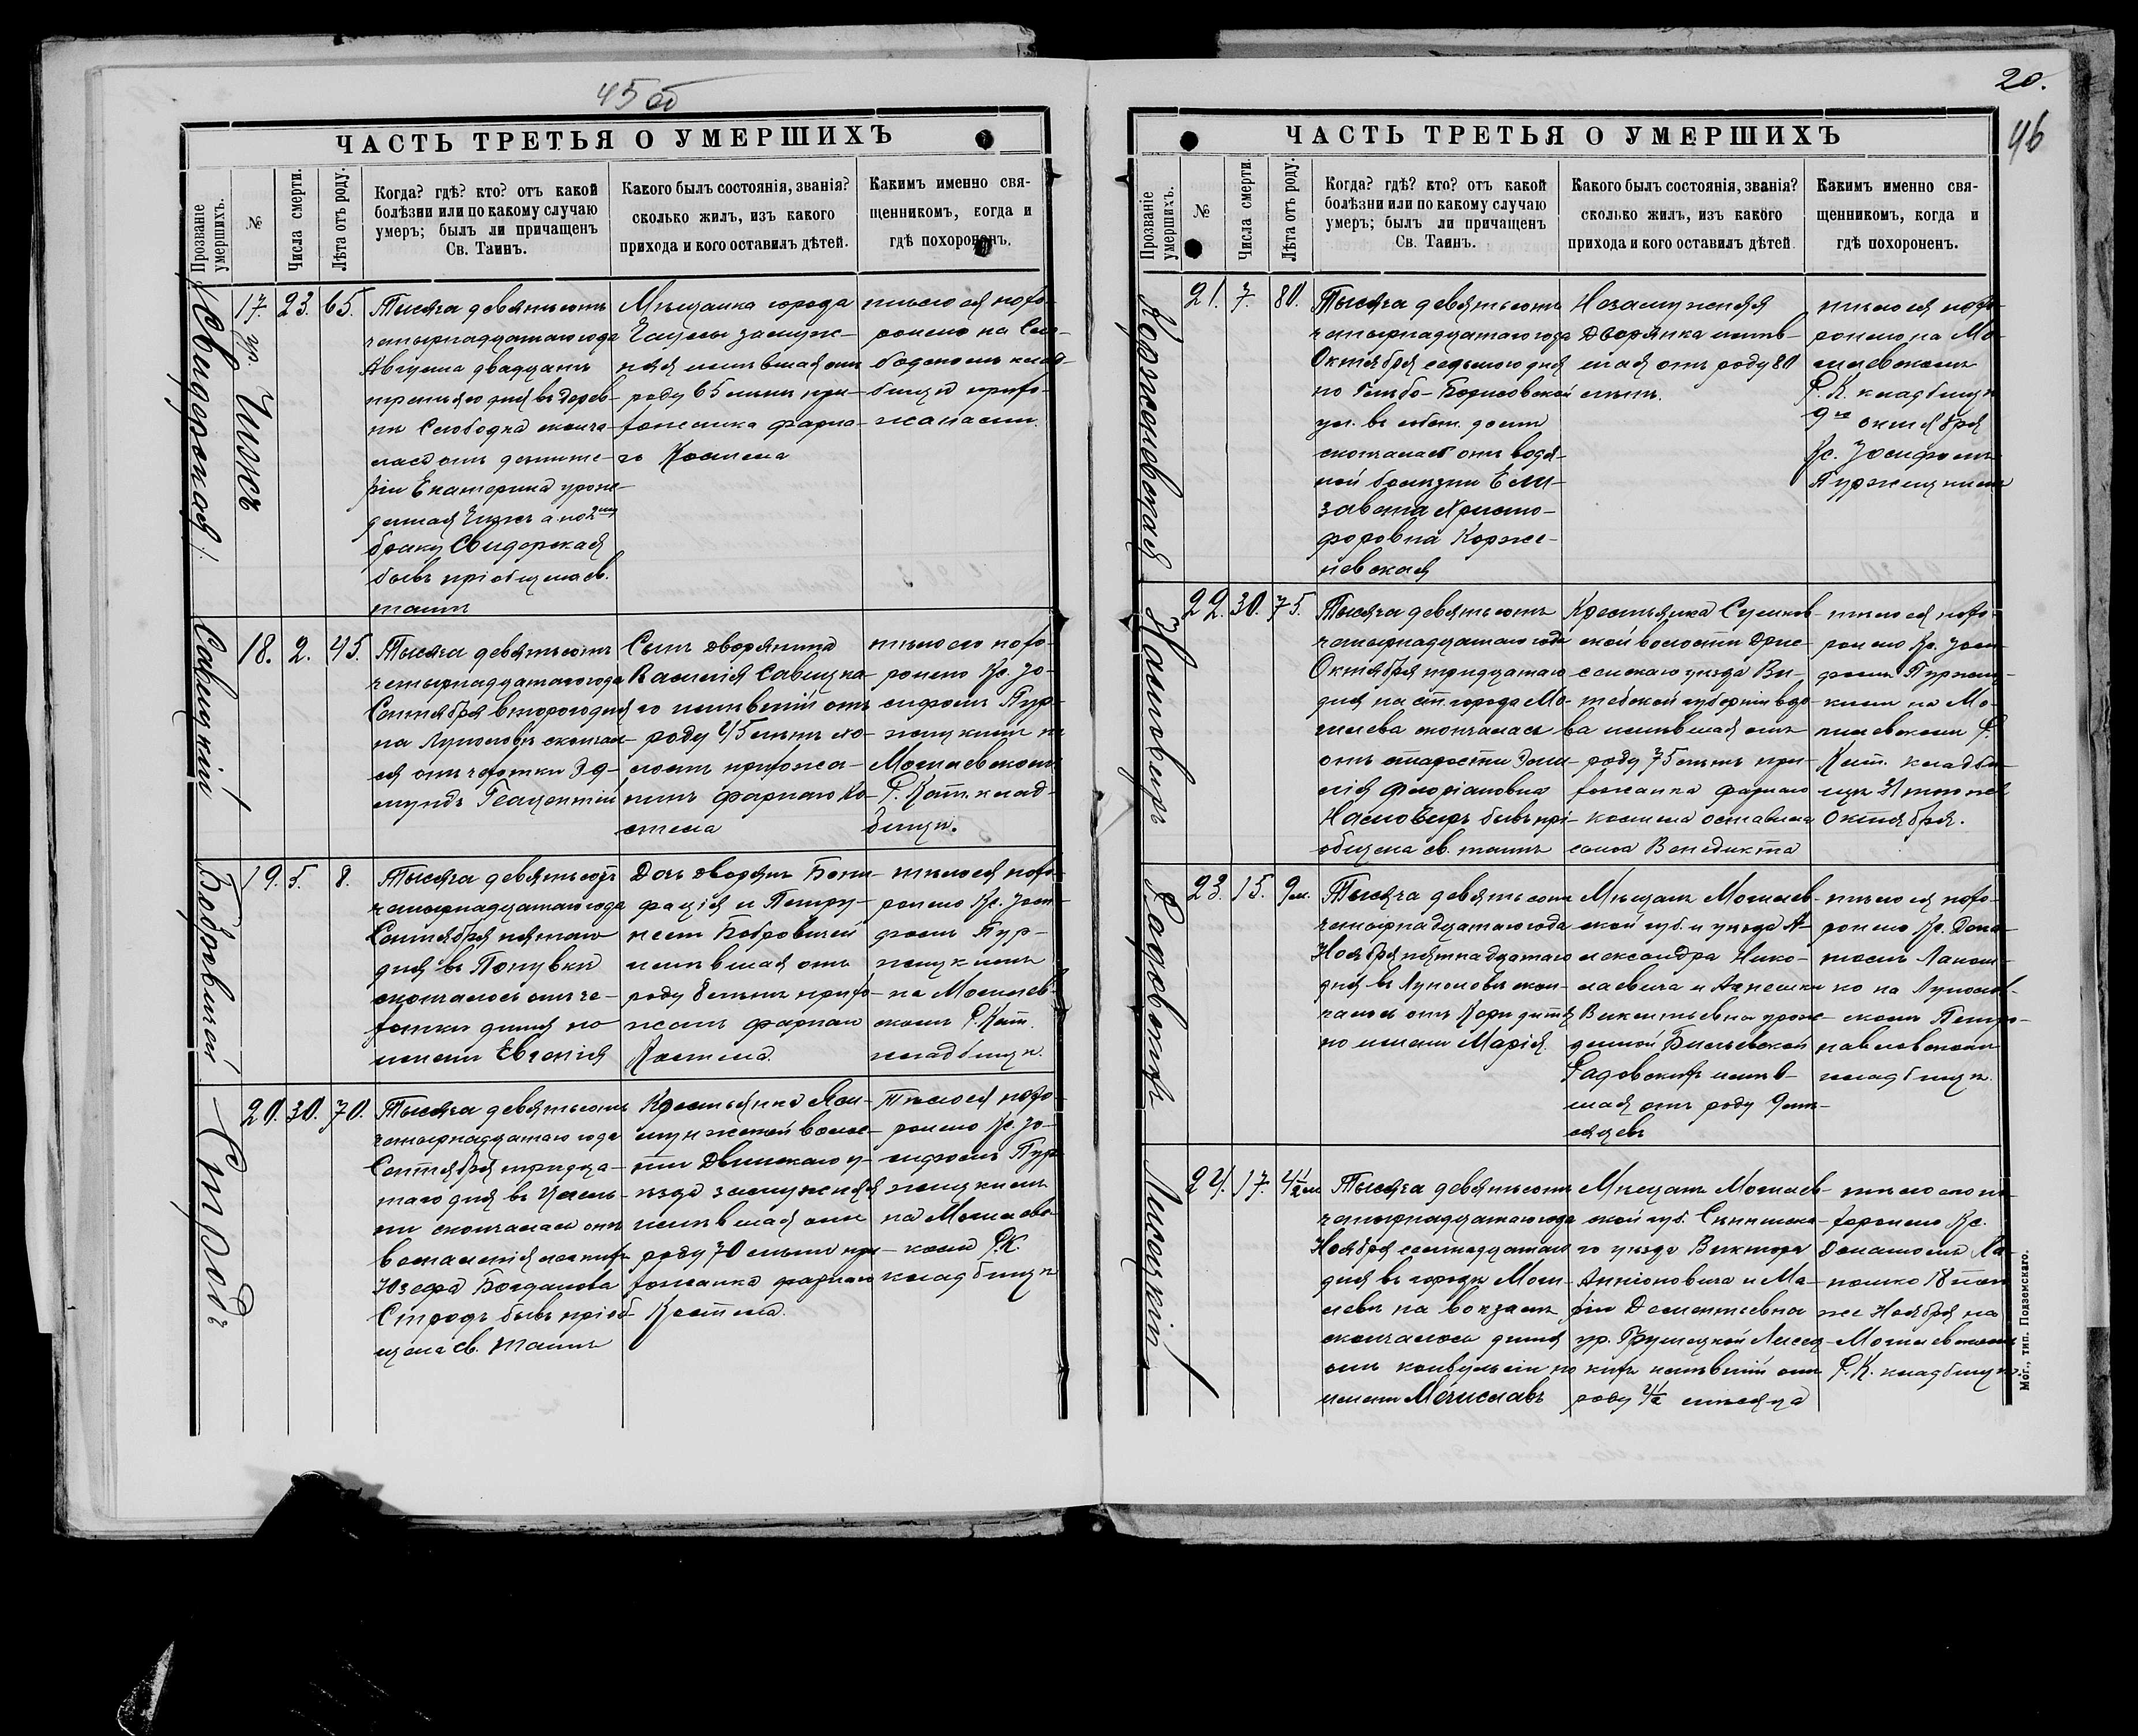 45 об
ЧАСТЬ ТРЕТЬЯ О УМЕРШИХЪ
Прозваніе умершихъ.
№
Числа смерти.
Лѣта отъ роду.
Когда? гдѣ? кто? отъ какой
болѣзни или по какому случаю
умеръ; былъ ли причащенъ
Св. Таинъ.
Какого былъ состоянія, званія?
сколько жилъ, изъ какого
прихода и кого оставилъ дѣтей.
Какимъ именно свя-
щенникомъ, когда и
гдѣ похороненъ.
17.
23.
65.
Тысяча девятьсотъ
четырнадцатаго года
Августа двадцать
третьяго дня въ дерев-
ни Слободка сконча-
лась отъ
Екатерина урож-
денная Чижъ а по 2му
браку Свидерская
бывъ пріобщена св.
таинъ
Мѣщанка города
замуж-
няя жившая отъ
роду 65 лѣтъ при-
хожанка фарна-
го Костела
тѣло ея похо-
ронено на Сло-
бодскомъ клад-
бищѣ прихо-
жанами.
Савицкій
18.
2.
45.
Тысяча девятьсотъ
четырнадцатаго года
Сентября второго дня
на Луполовѣ скончал-
ся отъ чахотки Эд-
мундъ
Сынъ дворянина
Василія Савицка-
го жившій отъ
роду 45 лѣтъ хо-
лостъ прихожа-
нинъ фарнаго Ко-
стела
тѣло его похо-
ронено Кс. Іо-
сифомъ Пур-
жицкимъ на
Могилевскомъ
Р. Кат. клад-
бищѣ.
19.
5.
8.
Тысяча девятьсотъ
четырнадцатаго года
Сентября пятаго
дня въ
скончалось отъ ча-
хотки дитя по
имени Евгенія
Дочь дворянъ Бони-
фація и Петру-
нели Бобровичей
жившая отъ
роду 8 лѣтъ прихо-
жанъ фарнаго
Костела.
тѣло ея похо-
ронено Кс. Іоси-
фомъ Пур-
жицкимъ
на Могилев-
скомъ Р. Кат.
кладбищѣ.
Стродъ
20.
30.
70.
Тысяча девятьсотъ
четырнадцатаго года
Сентября тридца-
таго дня въ
скончалась отъ
воспаленія легкихъ
Юзефа Богданова
Стродъ бывъ пріоб-
щена св. таинъ
Крестьянка
волос-
ти Двинскаго у-
ѣзда замужняя
жившая отъ
роду 70 лѣтъ при-
хожанка фарнаго
Костела.
Тѣло ея похо-
ронено Кс. Іо-
сифомъ Пур-
жицкимъ
на Могилевс-
комъ Р.К.
кладбищѣ
20.
46
ЧАСТЬ ТРЕТЬЯ О УМЕРШИХЪ
Прозваніе умершихъ.
№
Числа смерти.
Лѣта отъ роду.
Когда? гдѣ? кто? отъ какой
болѣзни или по какому случаю
умеръ; былъ ли причащенъ
Св. Таинъ.
Какого былъ состоянія, званія?
сколько жилъ, изъ какого
прихода и кого оставилъ дѣтей.
Какимъ именно свя-
щенникомъ, когда и
гдѣ похороненъ.
Корженевская
21.
7.
80.
Тысяча девятьсотъ
четырнадцатаго года
Октября седьмого дня
по Глѣбо-Борисовской
ул. въ собств. домѣ
скончалась отъ водя-
ной болѣзни Ели-
завета Христо-
форовна Корже-
невская
Незамужняя
Дворянка жив-
шая отъ роду 80
лѣтъ.
тѣло ея похо-
ронено на Мо-
гилевскомъ
Р. К. кладбищѣ
9го октября
Кс. Іосифомъ
Пуржицкимъ
22.
30.
75.
Тысяча девятьсотъ
четырнадцатаго года
Октября тридцатаго
дня на ст. города Мо-
гилева скончалась
отъ старости
Флоріановна
бывъ прі-
общена св. таинъ
Крестьянка
ской волости Дрис-
сенскаго уѣзда Ви-
тебской губерніи вдо-
ва жившая отъ
роду 75 лѣтъ при-
хожанка фарнаго
костела оставила
сына Венедикта
тѣло ея похо-
ронено Кс. Іоси-
фомъ Пуржиц-
кимъ на Мо-
гилевскомъ Р.
Кат. кладби-
щѣ 31 того же
Октября.
Садовскихъ
23.
15.
9 м.
Тысяча девятьсотъ
четырнадцатаго года
Ноября пятнадцатаго
дня въ Луполовѣ скон-
чалось отъ Кори дитя
по имени Марія.
Мѣщанъ Могилев-
ской губ. и уѣзда А-
лександра Нико-
лаевича и Агнешки
Викентьевны урож-
денной
Садовскихъ жив-
шая отъ роду 9 мѣ-
сяцевъ
тѣло ея похо-
ронено Кс. Дона-
томъ
на Луполов-
скомъ Петро-
павловскомъ
кладбищѣ.
24.
17.
4½ м
Тысяча девятьсотъ
четырнадцатаго года
Ноября семнадцатаго
дня въ городѣ Моги-
левѣ на вокзалѣ
скончалось дитя
отъ конвульсіи по
имени Мечиславъ
Мѣщанъ Могилев-
ской губ. Сѣннинска-
го уѣзда Виктора
Антоновича и Ма-
ріи Дементьевны
ур.
жившій отъ
роду 4½ мѣсяца
тѣло его по-
хоронено Кс.
Донатомъ
18 того
же Ноября на
Могилевскомъ
Р.К. кладбищѣ.
Мог., тип. Подземскаго.